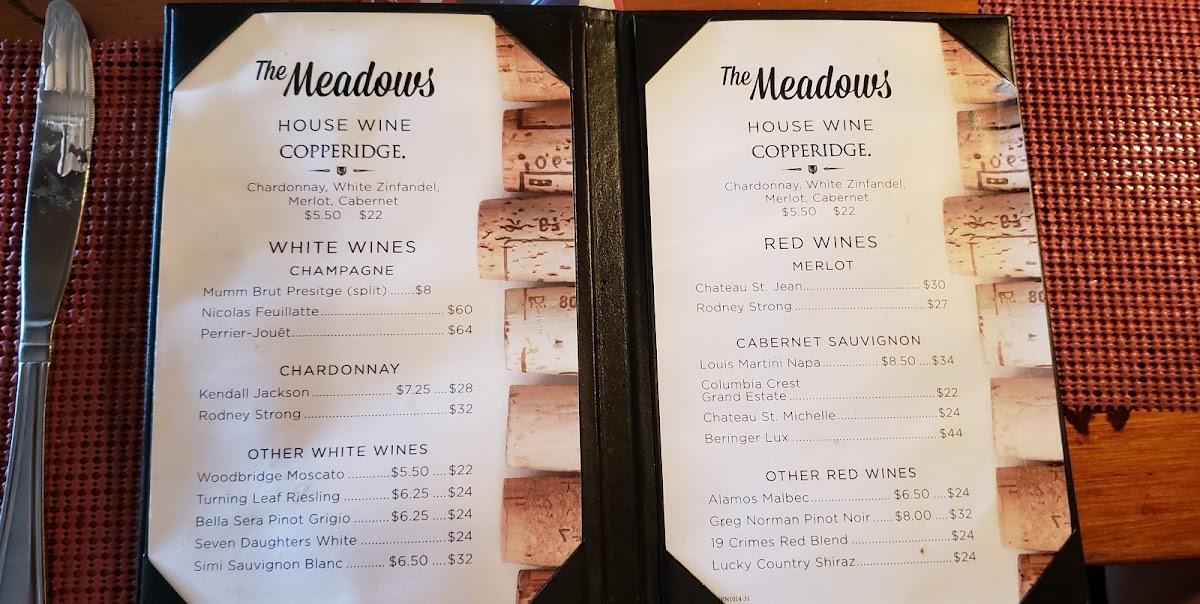 The Meadows
HOUSE WINE
COPPERIDGE.
Chardonnay, White Zinfandel,
Merlot, Cabernet
$5.50 $22
WHITE WINES
CHAMPAGNE
Mumm Brut Presitge (split) .......$8
Nicolas Feuillatte.............................. $60
Perrier-Jouët...................................... $64
CHARDONNAY
Kendall Jackson.................... $7.25 ....$28
Rodney Strong................................... $32
OTHER WHITE WINES
Woodbridge Moscato ..........$5.50 ....$22
Turning Leaf Riesling ...........$6.25 ....$24
Bella Sera Pinot Grigio .........$6.25 ....$24
Seven Daughters White .....................$24
Simi Sauvignon Blanc ..........$6.50 ....$32
The Meadows
HOUSE WINE
COPPERIDGE.
Chardonnay, White Zinfandel,
Merlot, Cabernet
$5.50 $22
RED WINES
MERLOT
Chateau St. Jean............................. $30
Rodney Strong................................. $27
CABERNET SAUVIGNON
Louis Martini Napa.............. $8.50 ....$34
Columbia Crest
Grand Estate....................................$22
Chateau St. Michelle......................... $24
Beringer Lux .................................... $44
OTHER RED WINES
Alamos Malbec.................... $6.50 ....$24
Greg Norman Pinot Noir ..... $8.00 ....$32
19 Crimes Red Blend ........................$24
Lucky Country Shiraz........................$24